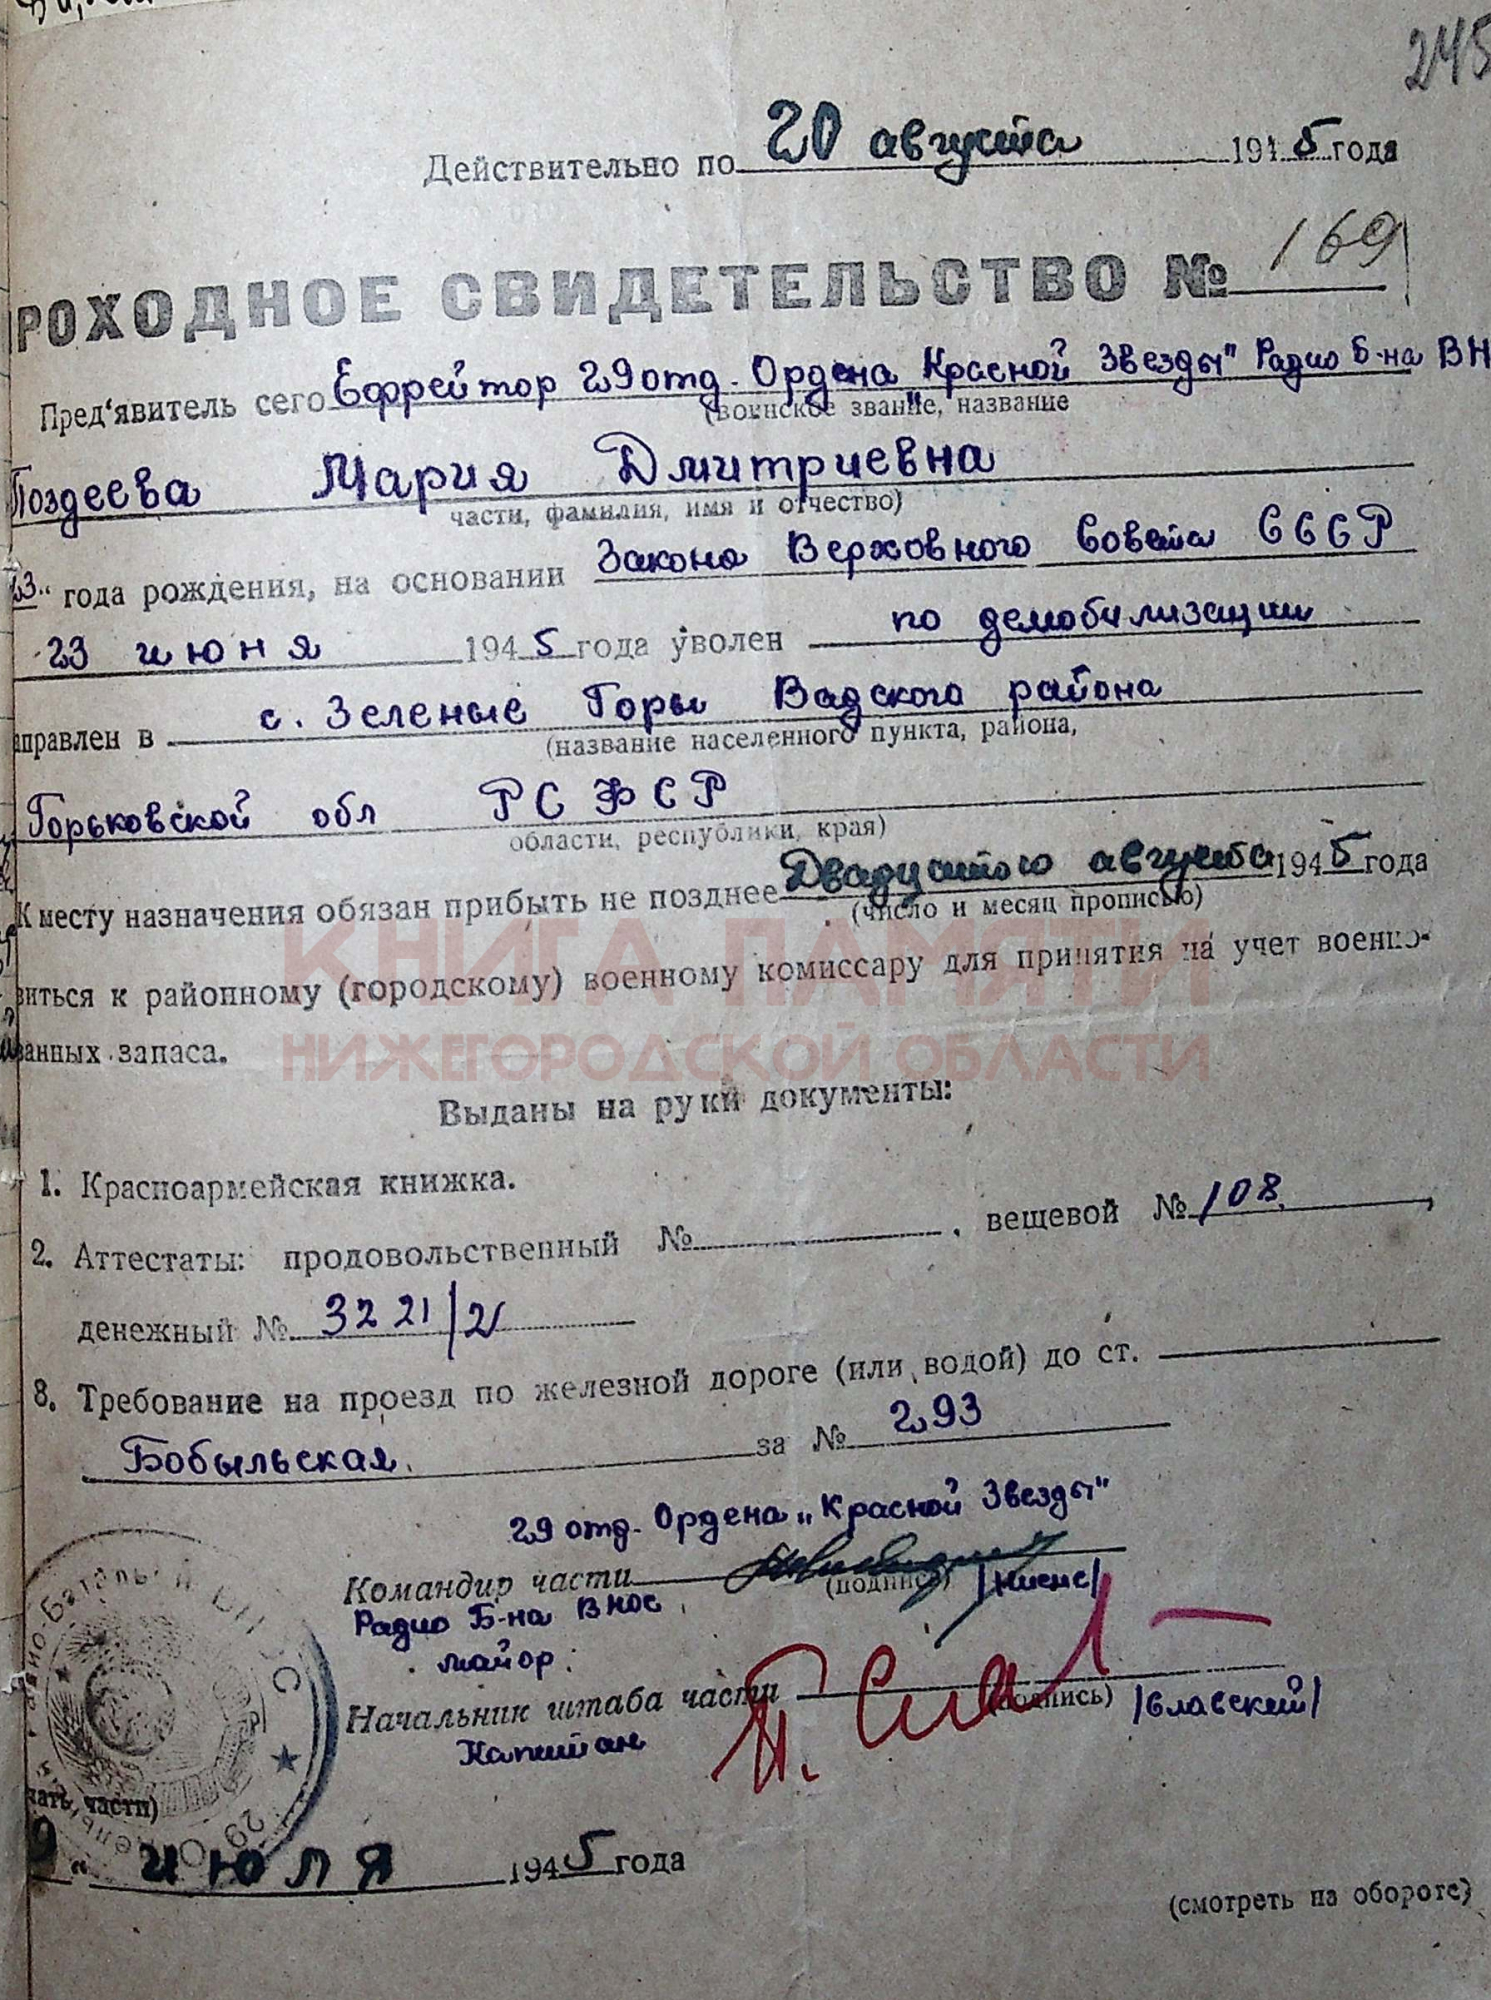 245
Действительно по 20 августа 1945 года
РОХОДНОЕ СВИДЕТЕЛЬСТВО № 169
Пред‘явитель сего Ефрейтор 29 отд. Ордена „Красной Звезды" Радио Б-на ВН
(воинское звание, название
Поздеева Мария Дмитриевна
части, фамилия, имя и отчество)
23" года рождения, на основании Закона Верховного Совета СССР
23 июня 1945 года уволен по демобилизации
аправлен в с. Зеленые Горы Вадского района
(название населенного пункта, района,
Горьковской обл РСФСР
области, республики, края)
К месту назначения обязан прибыть не позднее Двадцатого августа 1945 года
(число и месяц прописью)
виться к районному (городскому) военному комиссару для принятия на учет военно-
занных запаса.
КНИГА ПАМЯТИ
НИЖЕГОРОДСКОЙ ОБЛАСТИ
Выданы на руки документы:
1. Красноармейская книжка.
2. Аттестаты: продовольственный № , вещевой № 108,
денежный № 3221/2
3. Требование на проезд по железной дороге (или водой) до ст.
Бобыльская. за № 293
29 отд. Ордена „Красной Звезды"
Командир части (подпись)
Радио Б-на ВНОС
майор.
Начальник штаба части (подпись) /Славский/
Капитан
чать части)
9 " июля 1945 года
(смотреть на обороте)